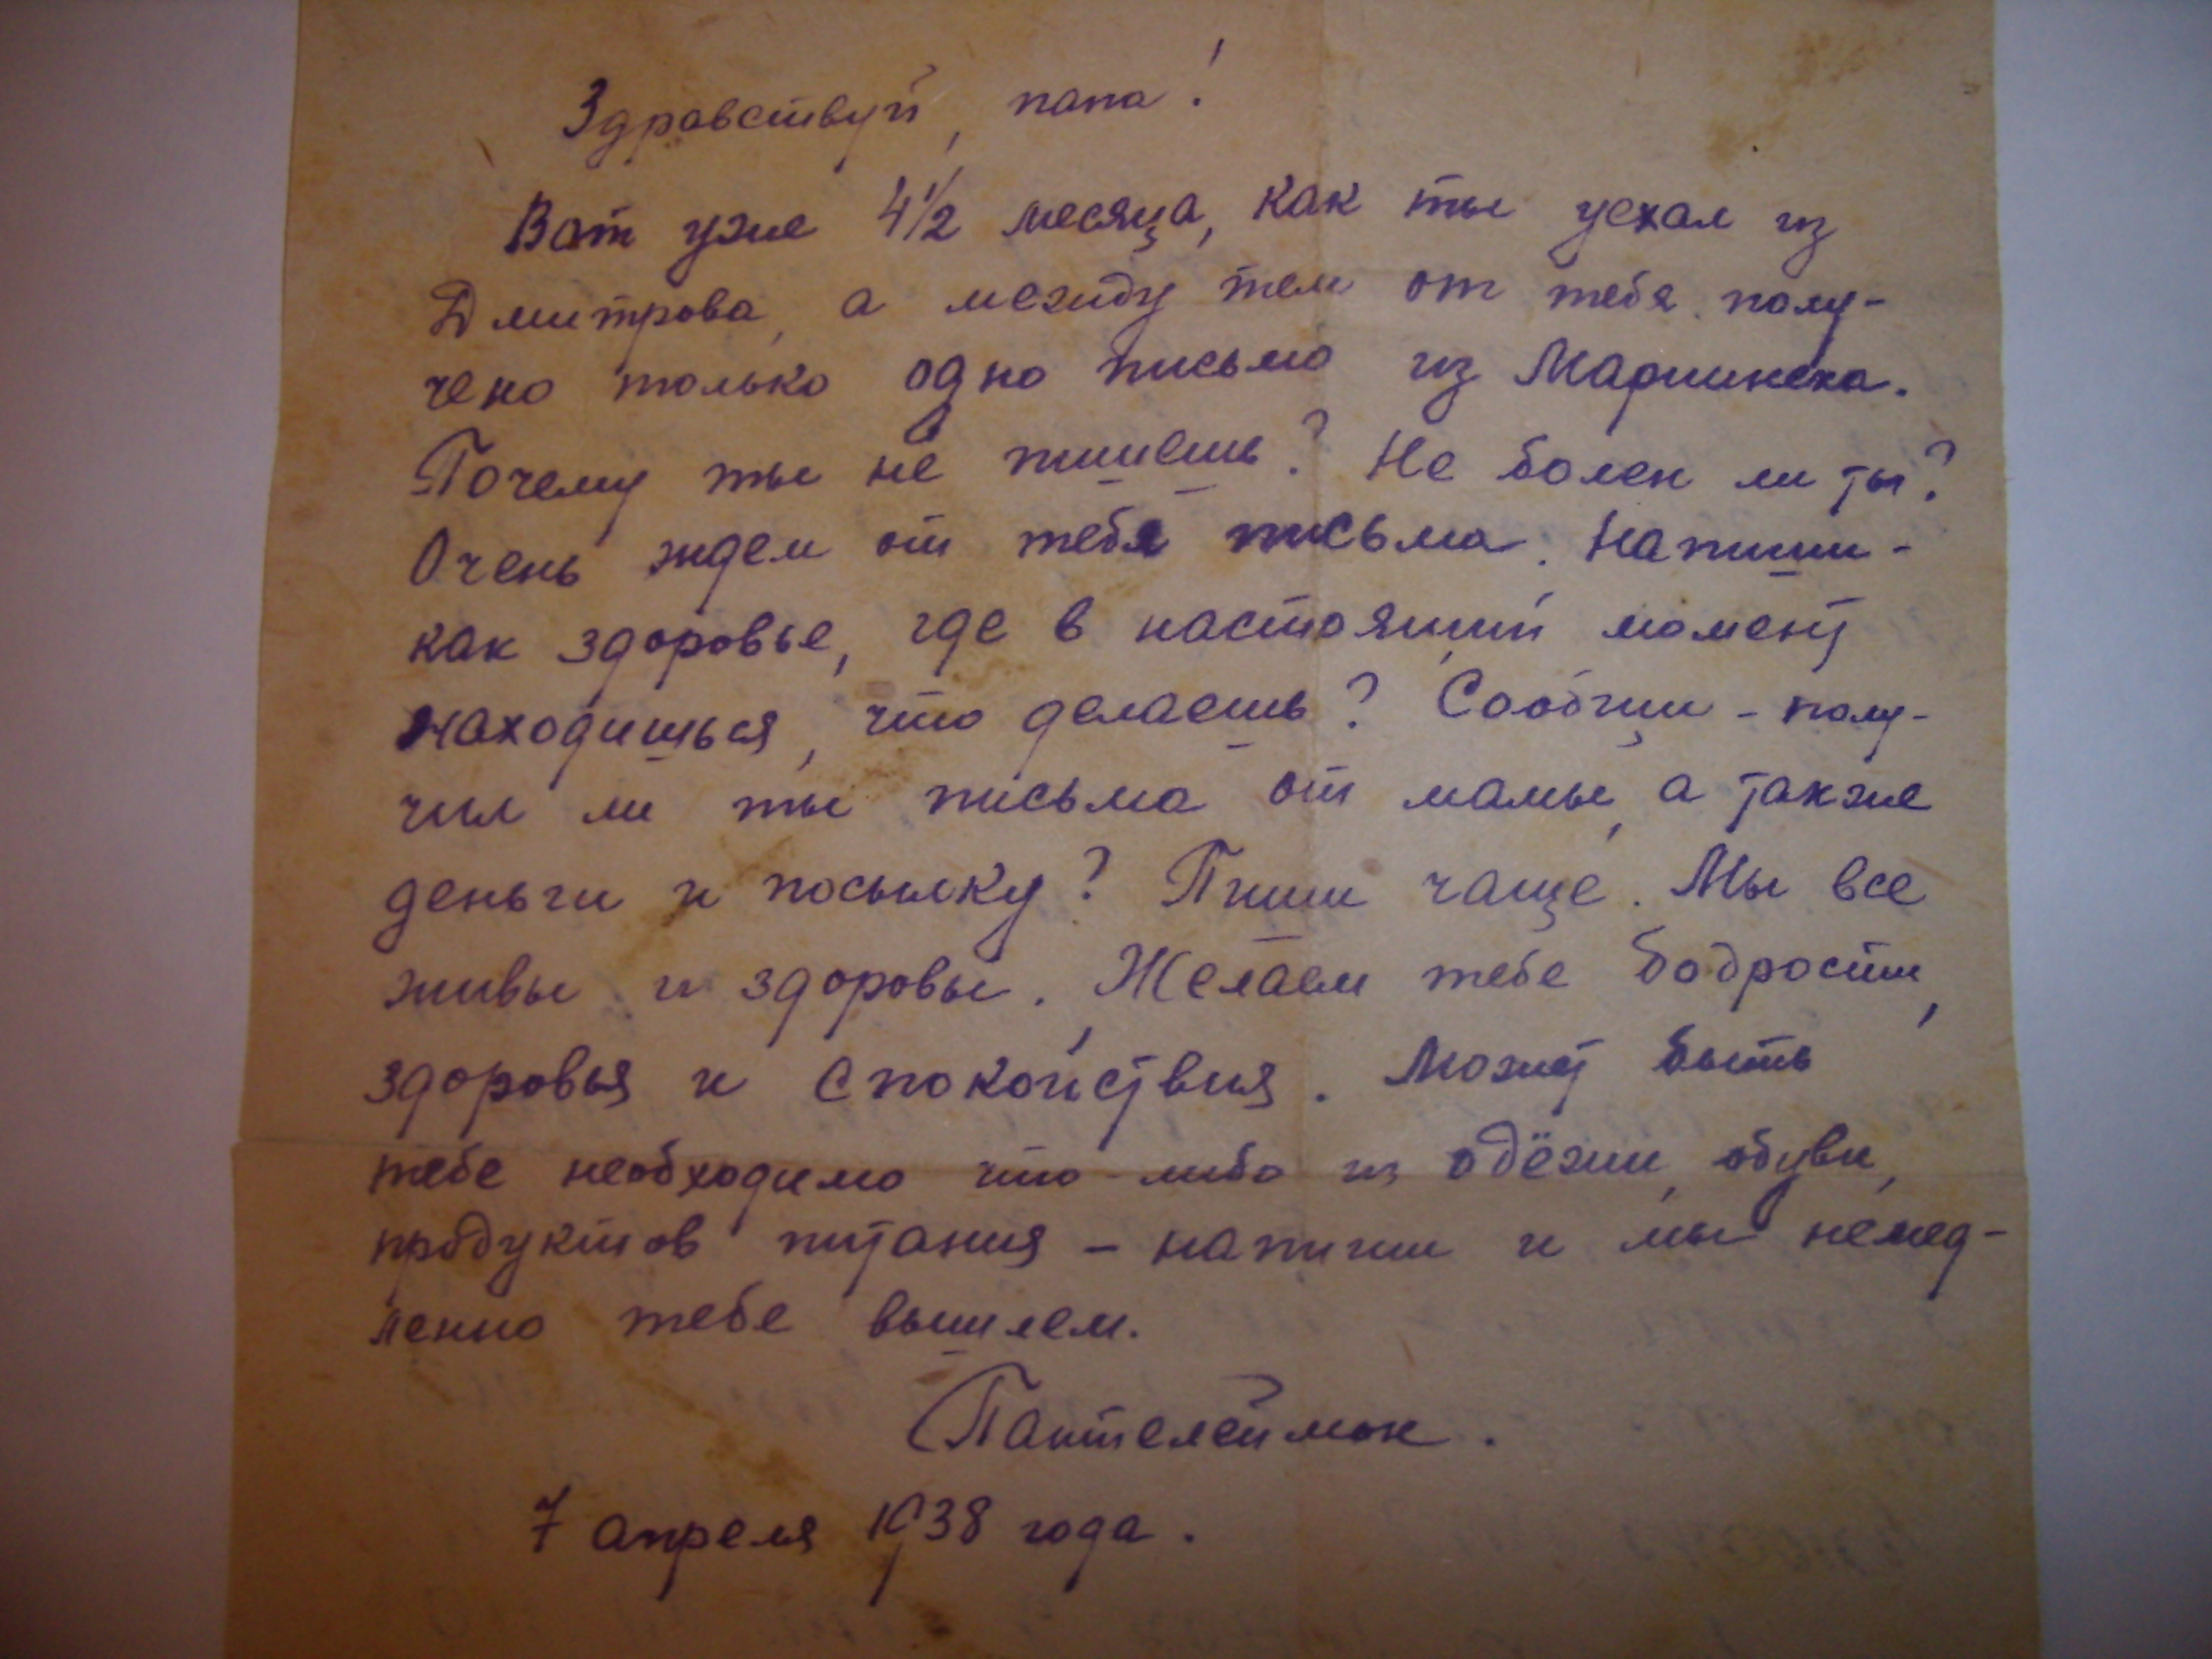 Здравствуй, папа!
Вот уже 4 1/2 месяца, как ты уехал из
Дмитрова, а между тем от тебя полу-
чено только одно письмо из Мариинска.
Почему ты не пишешь? Не болен ли ты?
Очень ждем от тебя письма. Напиши -
как здоровье, где в настоящий момент
находишься, что делаешь? Сообщи - полу-
чил ли ты письма от мамы, а также
деньги и посылку? Пиши чаще. Мы все
живы и здоровы. Желаем тебе бодрости,
здоровья и спокойствия. Может быть
тебе необходимо что-либо из одёжи, обуви,
продуктов питания - напиши и мы немед-
ленно тебе вышлем.
Пантелеймон.
7 апреля 1938 года.